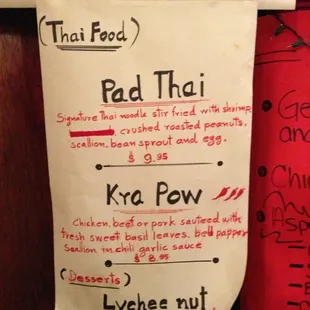 (Thai Food)
Pad Thai
Signature Thai noodle stir fried with shrimp,
, crushed roasted peanuts,
scallion, bean sprout and egg.
$ 9.95
Kra Pow
Chicken, beef or pork sauteed with
fresh sweet basil leaves, bell papper
Scallion in chili garlic sauce
$ 8.95
(Desserts)
Lychee nut
Ge
and
Chic